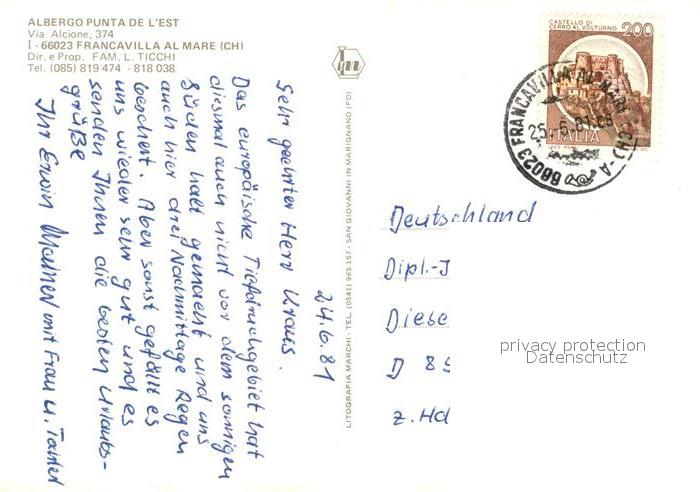 ALBERGO PUNTA DE L'EST
Via Alcione, 374
I - 66023 FRANCAVILLA AL MARE (CH)
Dir. e Prop. FAM. L. TICCHI
Tel. (085) 819 474 - 818 038
24.6.81
Sehr geehrter Herr Kraus.
Das europäische Tiefdruckgebiet hat
diesmal auch nicht vor dem sonnigen
Süden halt gemacht und uns
auch hier drei Nachmittage Regen
beschert. Aber sonst gefällt es
uns wieder sehr gut und es
senden Ihnen die besten Urlaubs-
grüße
Ihr Erwin mit Frau u. Tochter
LITOGRAFIA MARCHI - TEL. (0541) 965 157 - SAN GIOVANNI IN MARIGNANO (FO)
CASTELLO DI
CERRO AL VOLTURNO
200
ITALIA
66023 FRANCAVILLA AL MARE (CH) - A
25.6.81
Deutschland
Dipl.-I
Diese
D 85
z. Hd
privacy protection
Datenschutz